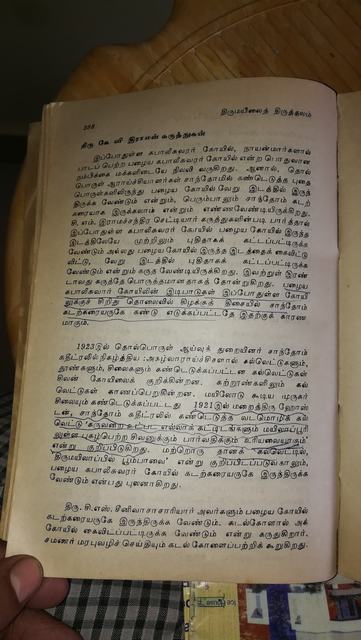 358
திருமயிலைத் திருத்தலம்
திரு கே. வி. இராமன் கருத்துகள்
இப்போதுள்ள கபாலீசுவரர் கோயில், நாயன்மார்களால்
பாடப் பெற்ற பழைய கபாலீசுவரர் கோயில் என்ற பொதுவான
நம்பிக்கை மக்களிடையே நிலவி வருகிறது. ஆனால், தொல்
பொருள் ஆராய்ச்சியாளர்கள் சாந்தோமில் கண்டெடுத்த புதை
பொருள்களிலிருந்து பழைய கோயில் வேறு இடத்தில் இருந்
திருக்க வேண்டும் என்றும், பெரும்பாலும் சாந்தோம் கடற்
கரையாக இருக்கலாம் என்றும் எண்ணவேண்டியிருக்கிறது.
சி. எம். இராமச்சந்திர செட்டியார் கருத்துகளின்படி பார்த்தால்
இப்போதுள்ள கபாலீசுவரர் கோயில் பழைய கோயில் இருந்த
இடத்திலேயே முற்றிலும் புதிதாகக் கட்டப்பட்டிருக்க
வேண்டும் அல்லது பழைய கோயில் இருந்த இடத்தைக் கைவிட்டு
விட்டு, வேறு இடத்தில் புதிதாகக் கட்டப்பட்டிருக்க
வேண்டும் என்றும் கருத வேண்டியிருக்கிறது. இவற்றுள் இரண்
டாவது கருத்தே பொருத்தமானதாகத் தோன்றுகிறது. பழைய
கபாலீசுவரர் கோயிலின் இடிபாடுகள் இப்போதுள்ள கோயி
லுக்குச் சிறிது தொலைவில் கிழக்குத் திசையில் சாந்தோம்
கடற்கரையருகே கண்டு எடுக்கப்பட்டதே இதற்குக் காரண
மாகும்.
1923இல் தொல்பொருள் ஆய்வுத் துறையினர் சாந்தோம்
கதீட்ரலில் நிகழ்த்திய அகழ்வாராய்ச்சிகளால் கல்வெட்டுகளும்,
தூண்களும், சிலைகளும் கண்டெடுக்கப்பட்டன கல்வெட்டுகள்
சிவன் கோயிலைக் குறிக்கின்றன. கற்றூண்களிலும் கல்
வெட்டுகள் காணப்பெறுகின்றன. மயிலோடு கூடிய முருகர்
சிலையும் கண்டெடுக்கப்பட்டது 1921இல் மறைத்திரு ஹோஸ்
டன், சாந்தோம் கதீட்ரலில் கண்டெடுத்த வடமொழிக் கல்
வெட்டு எல்லாக் கட்டிடங்களும் மயிலாப்பூரி
லுள்ள புகழ்பெற்ற சிவனுக்கும் பார்வதிக்கும் உரிமையாகும்'
என்று குறிப்பிடுகிறது. மற்றொரு தானக் கல்வெட்டில்,
திருமயிலாப்பில் பூம்பாவை' என்று குறிப்பிடப்படுவதாலும்,
பழைய கபாலீசுவரர் கோயில் கடற்கரையருகே இருந்திருக்க
வேண்டும் என்பது புலனாகிறது.
திரு. டி.எஸ். சீனிவாசாசாரியார் அவர்களும் பழைய கோயில்
கடற்கரையருகே இருந்திருக்க வேண்டும். கடல்கோளால் அக்
கோயில் கைவிடப்பட்டிருக்க வேண்டும் என்று கருதுகிறார்.
சமணர் மரபுவழிச் செய்தியும் கடல் கோளைப்பற்றிக் கூறுகிறது.